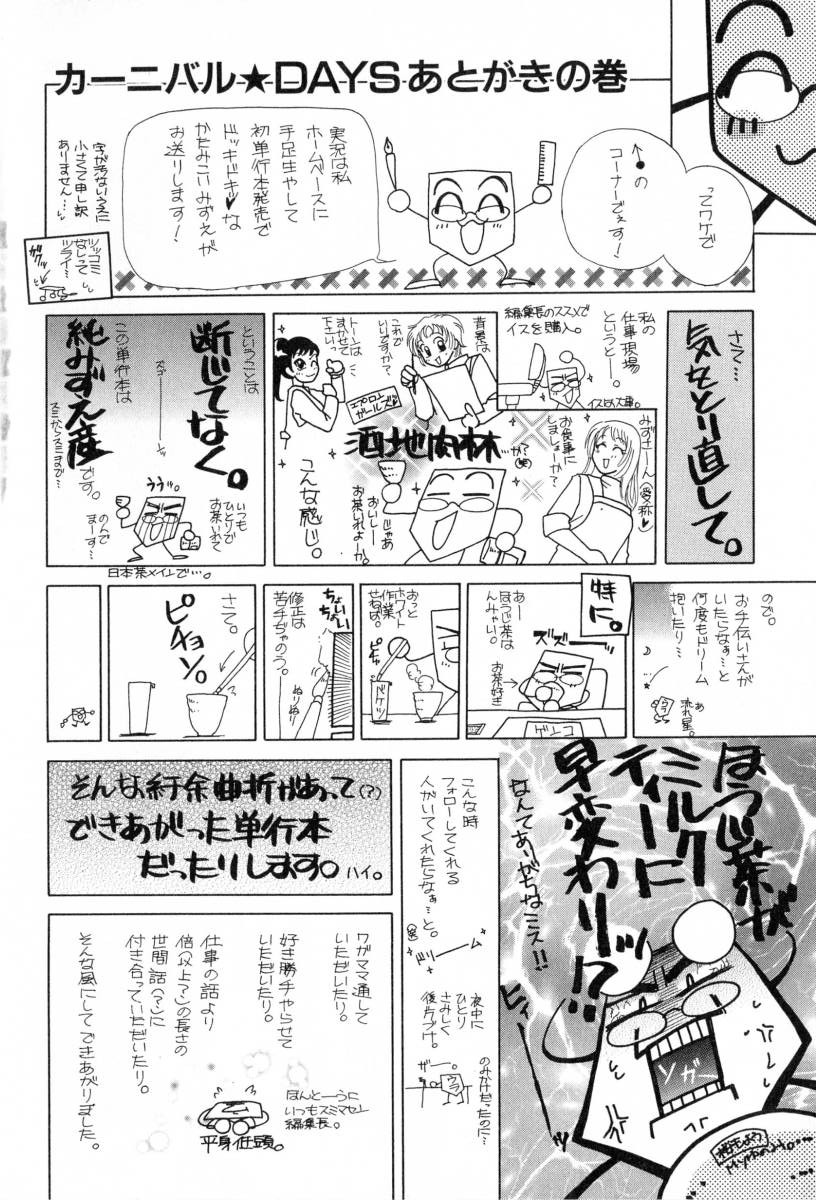 カーニバル★DAYSあとがきの巻
ってワケで
↑●の
コーナーでえす!
実況は私
ホームベースに
手足生やして
初単行本発売で
ドッキドキ♥な
かたみこいみずえが
お送りします!
字が汚ないうえに
小さくて申し訳
ありません…
ツッコミ
なしって
ツライ…
ガクッ
さて…
気をとり直して。
私の
仕事現場
というと―。
編集長のススメで
イスを購入。
イスは大事。
背景は
これで
いいですか?
トーンは
まかせて
下さいっ
エプロン
ガールズ
みずさーん(愛称♥)
お食事に
しましょーか?
酒池肉林
…か?
じゃあ
おいしー
お茶いれよーか。
こんな感じ。
ということは
断じてなく。
この単行本は
純みずえ産です。
スミからスミまで…
ううッ。
いつも
ひとりで
お茶いれて
のんで
まーす…
日本茶メインで…。
ので。
お手伝いさんが
いたらなぁ…と
何度もドリーム
抱いたり…
あ
流れ星。
特に。
あー
ほうじ茶は
んみゃい。
ズズーー
お茶好き
おっと
ホワイト
作業
せねば。
ピチョッ
バケツ
ちょいちょい
修正は
苦手ぢゃのう。
ぬりぬり
さて。
ピチョン。
ほうじ茶が
ミルク
ティーに
早変わりッ!?
なんてありがちなミス!!
ヒィー
ソガー
こんな時
フォローしてくれる
人がいてくれたらなぁ…と。
ドリーーム
夜中に
ひとり
さみしく
後片づけ。
ザー。
のみかけだったのに…
そんな紆余曲折があって(?)
できあがった単行本
だったりします。ハイ。
ワガママ通して
いただいたり。
好き勝手やらせて
いただいたり。
仕事の話より
倍(以上?)の長さの
世間話(?)に
付き合っていただいたり。
そんな風にしてできあがりました。
ほんとーうに
いつもスミマセン
編集長。
平身低頭。